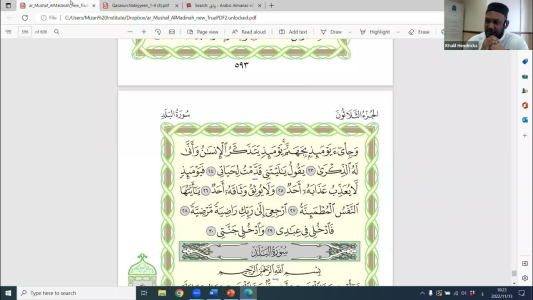 ar_Mushaf_AlMadinah_new_True
Qasasun Nabiyyeen_1-4 (4).pdf
Search
Arabic Almanac
File
C:/Users/Mizan%20Institute/Dropbox/ar_Mushaf_AlMadinah_new_TruePDF2.unlocked.pdf
of 608
Page view
Read aloud
Add text
Draw
Highlight
Erase
Khalil Hendricks
٥٩٣
سُورَةُ الْبَلَدِ
الجُزْءُ الثَّلَاثُونَ
وَجِاْىٓءَ يَوْمَئِذٍۭ بِجَهَنَّمَۚ يَوْمَئِذٍ يَتَذَكَّرُ ٱلْإِنسَٰنُ وَأَنَّىٰ
لَهُ ٱلذِّكْرَىٰ ٢٣ يَقُولُ يَٰلَيْتَنِى قَدَّمْتُ لِحَيَاتِى ٢٤ فَيَوْمَئِذٍ
لَّا يُعَذِّبُ عَذَابَهُۥٓ أَحَدٌ ٢٥ وَلَا يُوثِقُ وَثَاقَهُۥٓ أَحَدٌ ٢٦ يَٰٓأَيَّتُهَا
ٱلنَّفْسُ ٱلْمُطْمَئِنَّةُ ٢٧ ٱرْجِعِىٓ إِلَىٰ رَبِّكِ رَاضِيَةً مَّرْضِيَّةً ٢٨
فَٱدْخُلِى فِى عِبَٰدِى ٢٩ وَٱدْخُلِى جَنَّتِى ٣٠
سُورَةُ الْبَلَدِ
بِسْمِ ٱللَّهِ ٱلرَّحْمَٰنِ ٱلرَّحِيمِ
Type here to search
10:23
2022/11/13